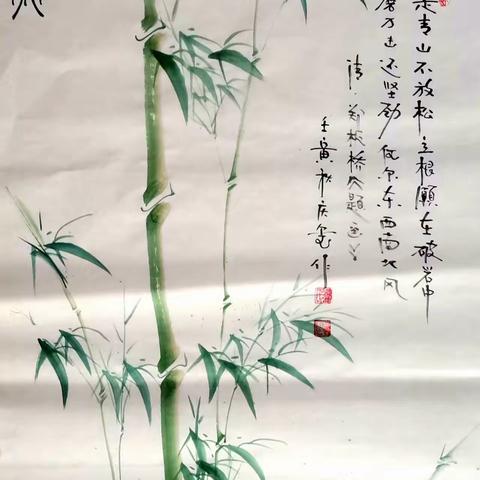 定青山不放松立根願在破岩中
磨万击还坚劲任尔东西南北风
清·郑板桥题画
壬寅秋庆作